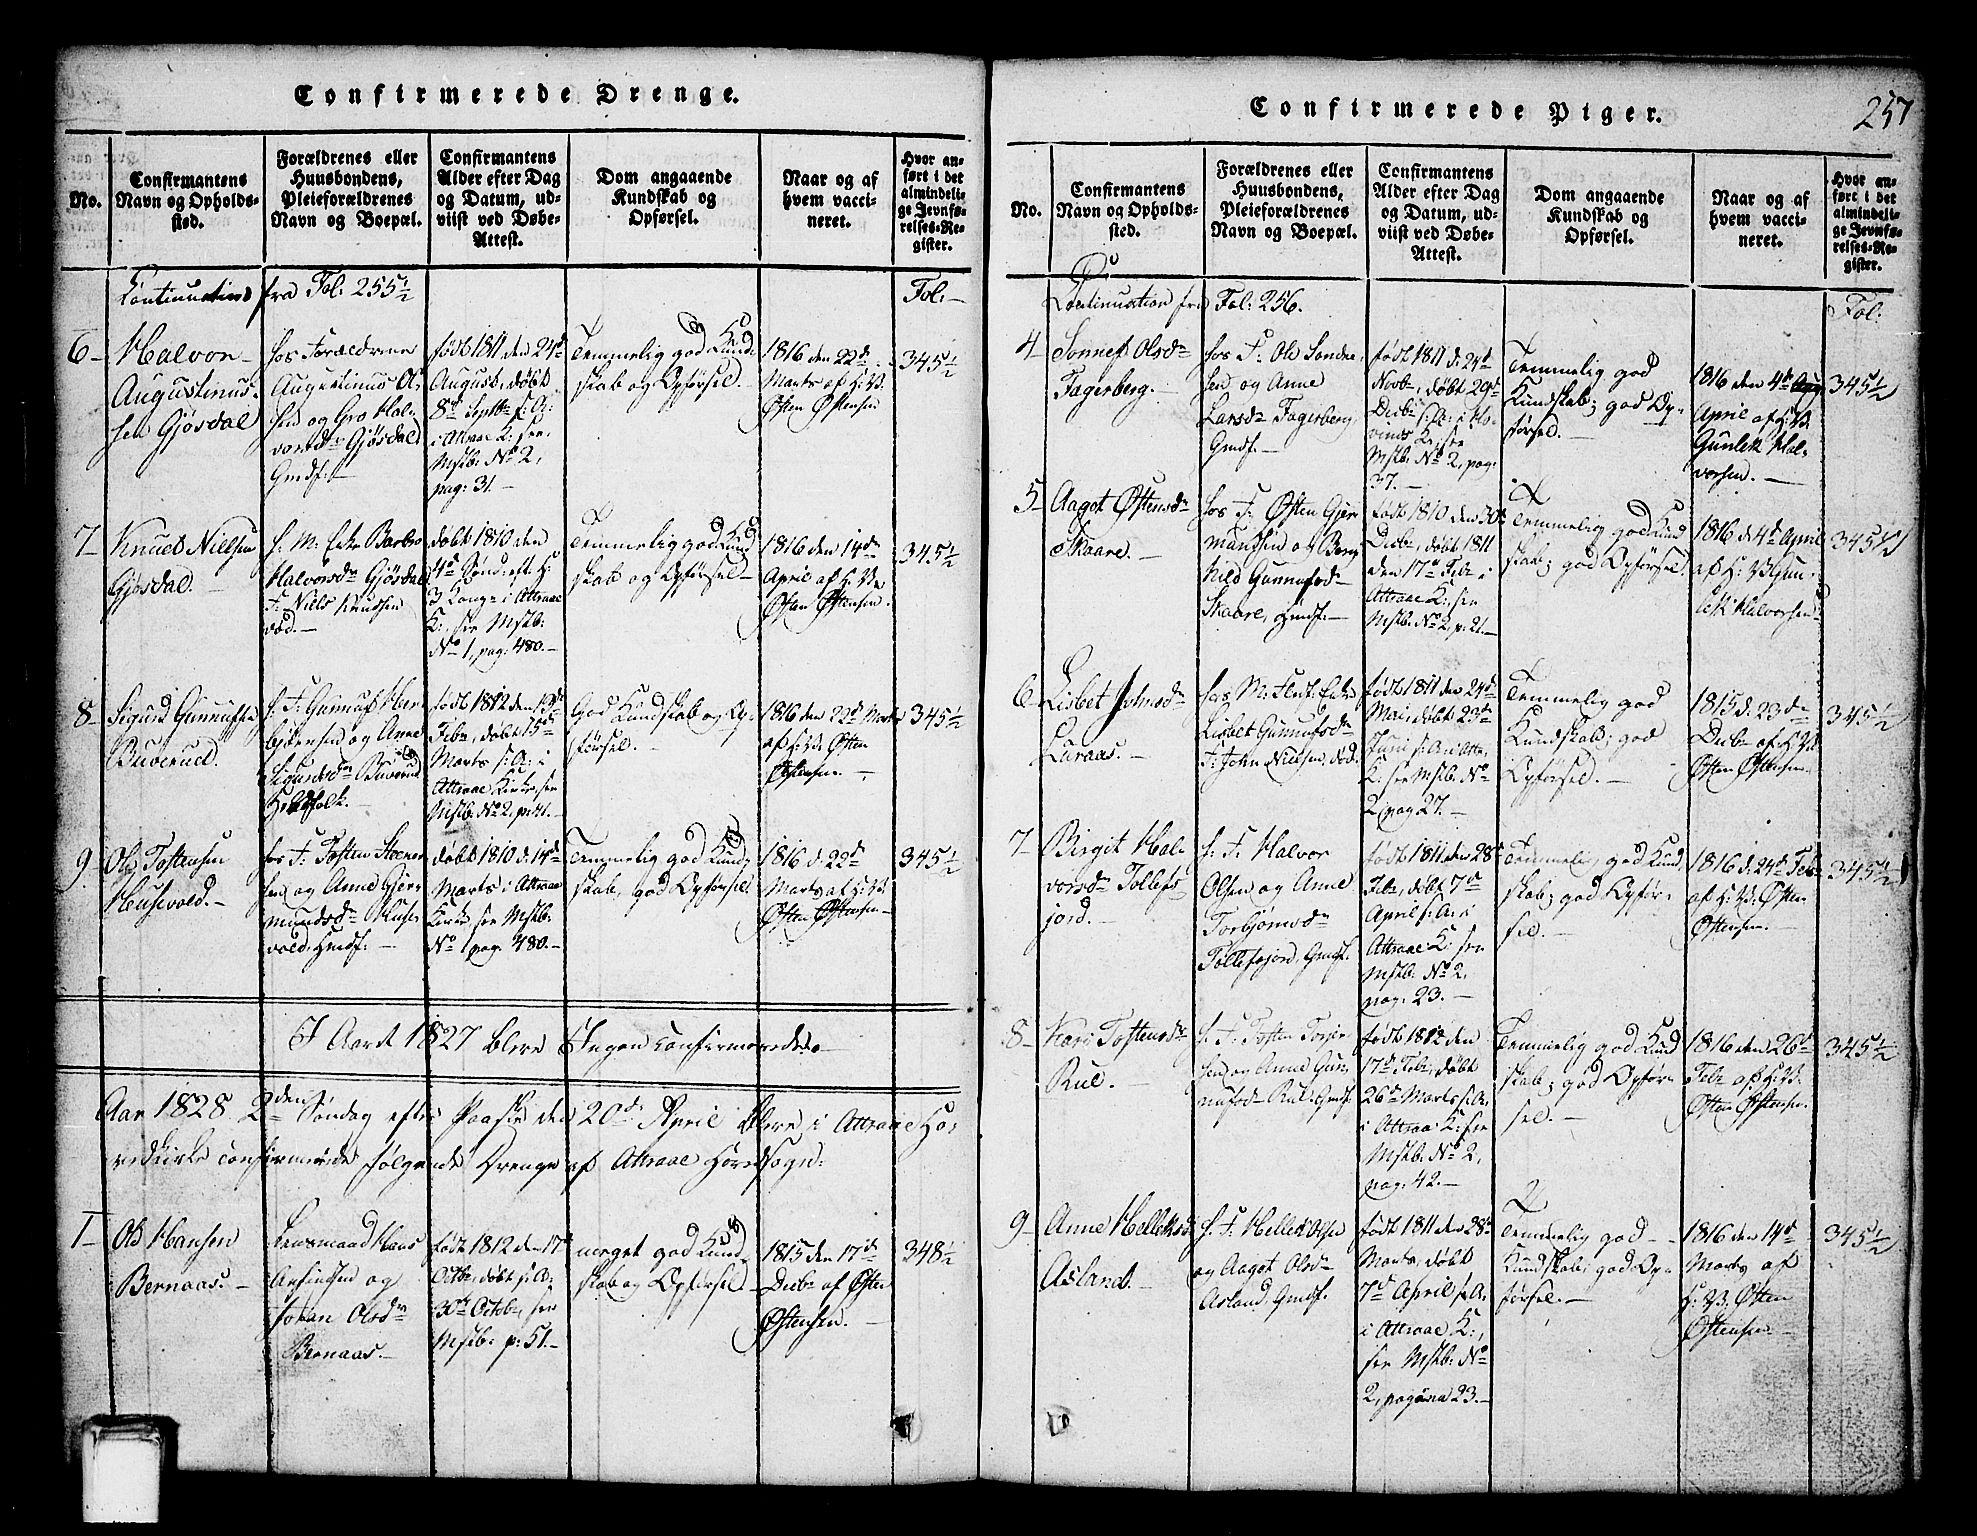 Confirmerede Drenge.
No.
Confirmantens
Navn og Opholds-
sted.
Forældrenes eller
Huusbondens,
Pleieforældrenes
Navn og Boepæl.
Confirmantens
Alder efter Dag
og Datum, ud-
viist ved Døbe-
Attest.
Dom angaaende
Kundskab og
Opførsel.
Naar og af
hvem vacci-
neret.
Hvor an-
ført i det
almindeli-
ge Jevnfø-
relses-Re-
gister.
Continuation fra Fol: 255½
Fol:
6
Halvor
Augustinus-
sen Gjøsdal
hos Forældrene
Augustinus Ol-
sen og Gro Hal-
vorsdr Gjøsdal
Gmdf:
født 1811 den 24de
August, døbt
8de Septbr s: A:
i Attraae K: see
Mstb: No 2,
pag: 31.
Temmelig god Kund-
skab og Opførsel.
1816 den 22de
Marts af H: V:
Østen Østensen
345½
7
Knuet Nielsen
Gjøsdal.
h: M: Enke Barbro
Halvorsdr Gjøsdal
F: Niels Knudsen
død.
døbt 1810 den
4de Sønd: eft: H:
3 Kong: i Attraae
K:, see Mstb:
No 1, pag: 480.
Temmelig god Kund-
skab og Opførsel
1816 den 14de
April af H: V:
Østen Østensen.
345½
8
Sigurd Gunnufsen
Buverud.
h: F: Gunnuf Her-
bjørnsen og Anne
Sigurdsdr Buverud
født 1812 den 13de
Febr, døbt 15de
Marts s: A: i
Attraae Kirke, see
Mstb: No 2, p: 41.
God Kundskab og Op-
førsel.
1816 den 22de Marts
af H: V: Østen
Østensen.
345½
9
Ole Tostensen
Husevold.
hos F: Tosten Steener-
sen og Anne Gjer-
mundsdr Huse-
vold, Hmdf:
døbt 1810 d. 14de
Marts i Attraae
Kirke see Mstb:
No 1 pag: 480.
Temmelig god Kund-
skab, god Opførsel
1816 d. 22de
Marts af H: V:
Østen Østensen
345½
I Aaret 1827 bleve Ingen confirmerede.
Aar 1828 2den Søndag efter Paaske den 20de April bleve i Attraae Ho-
vedkirke confirmerede følgende Drenge af Attraae Hovedsogn:
1
Ole Hansen
Bernaas.
Lensmand Hans
og
Joran Olsdr
Bernaas.
født 1812 den 17de
Octbr, døbt s: A:
30te Octbr, see
Mstb: p: 51.
meget god Kund-
skab og Opførsel
1815 den 17de
Decbr af Østen
Østensen.
348½
Confirmerede Piger.
257
No.
Confirmantens
Navn og Opholds-
sted.
Forældrenes eller
Huusbondens,
Pleieforældrenes
Navn og Boepæl.
Confirmantens
Alder efter Dag
og Datum, ud-
viist ved Døbe-
Attest.
Dom angaaende
Kundskab og
Opførsel.
Naar og af
hvem vacci-
neret.
Hvor an-
ført i det
almindeli-
ge Jevnfø-
relses-Re-
gister.
Continuation fra Fol: 256.
Fol:
4
Sønnef Olsdr
Fagerberg.
hos F: Ole Sonde-
sen og Anne
Larsdr Fagerberg
Gmdf.
født 1811 d: 24de
Novbr, døbt 29de
Decbr s: A: i Ho-
vinds K: see
Mstb: No 2, pag:
37.
Temmelig god
Kundskab; god Op-
førsel.
1816 den 4de
April af H: V:
Gunlek Hal-
vorsen.
345½
5
Aagot Østensdr
Skaare.
hos F: Østen Gjer-
mundsen og Berg-
hild Gunnufsdr
Skaare, Gmdf.
født 1810 den 30te
Decbr, døbt 1811
den 17de Febr i
Attraae K:, see
Mstb: No 2, p: 21.
Temmelig god Kund-
skab; god Opførsel.
1816 d: 4de April
af H: V: Gun-
lek Halvorsen
345½
6
Lisbet Johnsdr
Laraas.
hos M: Enke
Lisbet Gunnufsdr
F: John Nielsen, død.
født 1811 den 24de
Mai, døbt 23de
Juni s: A: i Attr:
K: see Mstb: No
2, pag 27.
Temmelig god
Kundskab; god
Opførsel.
1815 d. 23de
Decbr af H: V:
Østen Østensen
345½
7
Birgit Hal-
vorsdr Tollefs-
jord.
h: F: Halvor
Olsen og Anne
Torbjørnsdr
Tollefsjord, Gmdf.
født 1811 den 28de
Febr, døbt 7de
April s: A: i
Attraae K: see
Mstb: No 2,
pag: 23.
Temmelig god Kund-
skab; god Opfør-
sel.
1816 d. 24de Febr
af H: V: Østen
Østensen.
345½
8
Kari Tostensdr
Rue.
h: F: Tosten
sen og Anne Gun-
nufsdr Rue, Gmdf.
født 1812 den
17de Febr, døbt
26de Marts s: A:
i Attraae K: see
Mstb: No 2,
pag: 42.
Temmelig god Kund
skab; god Opfør-
sel.
1816 den 26de
Febr af H: V:
Østen Østensen.
345½
9
Anne Helleksdr
Asland.
h: F: Hellek Olsen
og Aagot Olsdr
Asland, Gmdf.
født 1811 den 28de
Marts, døbt
7de April s: A:
i Attraae K:,
see Mstb: No
2, pagina 23.
Temmelig god
Kundskab; god Op-
førsel.
1816 den 14de
Marts af
H: V: Østen
Østensen.
345½